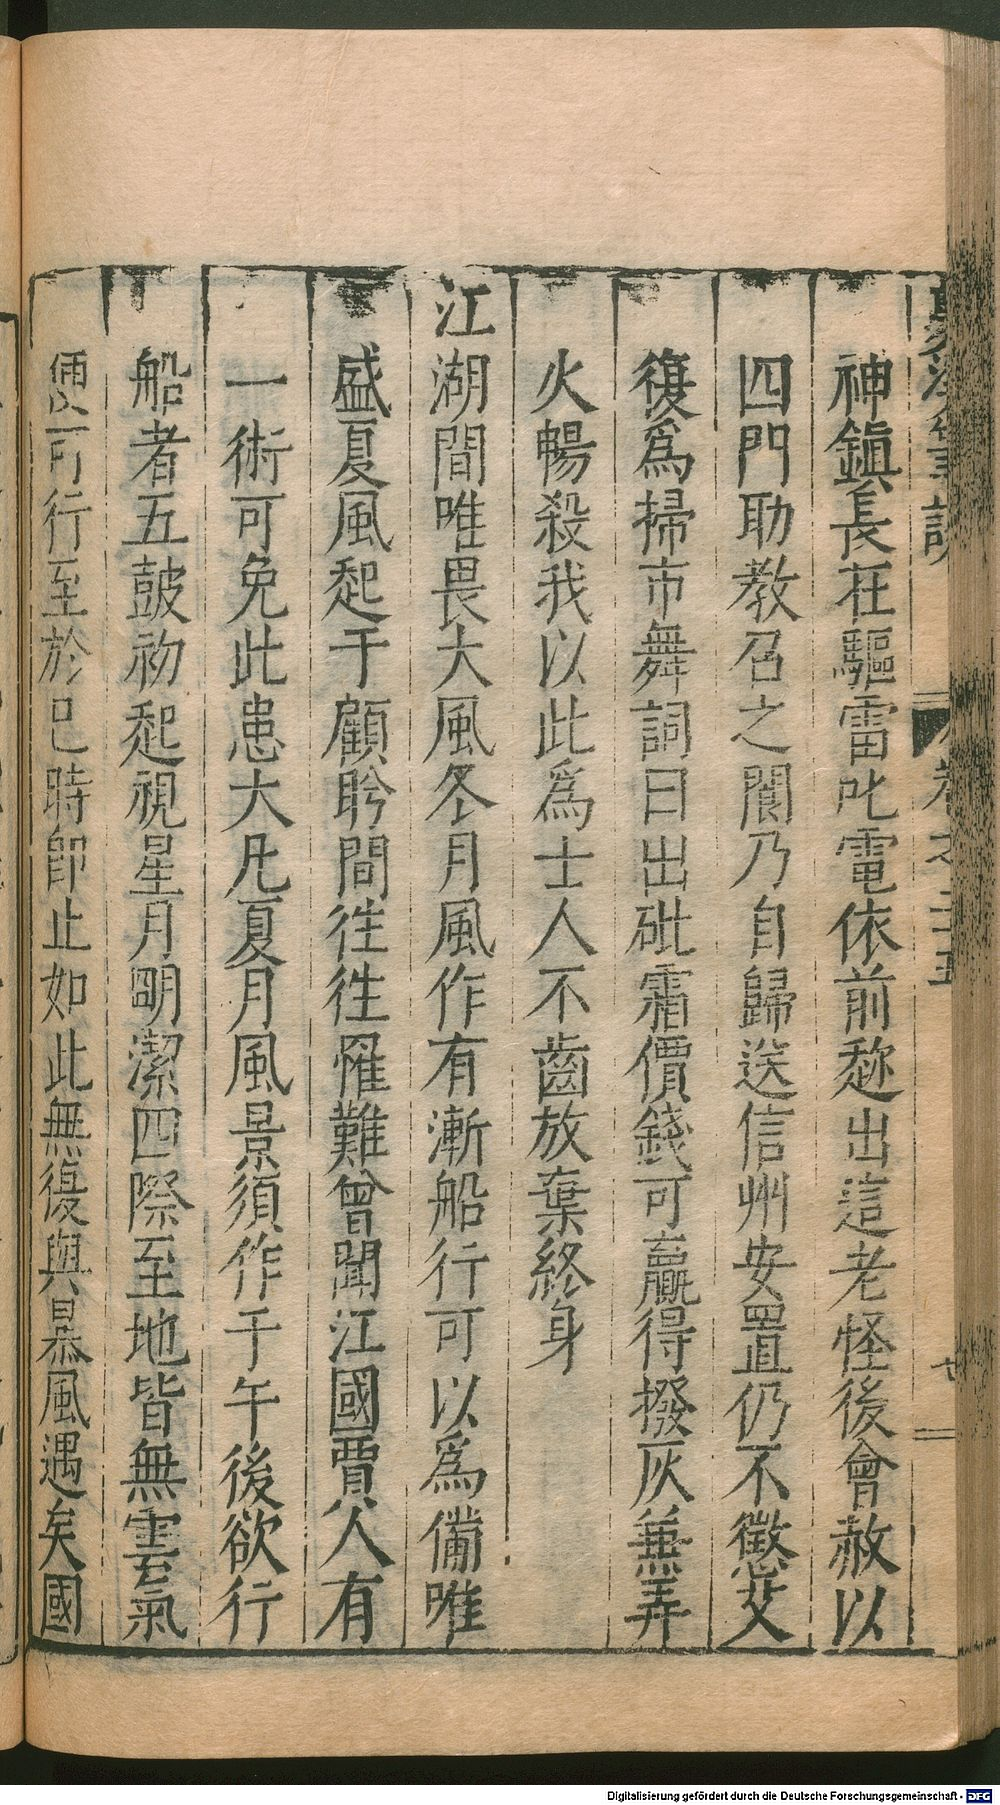 神鎮長在驅雷叱電依前趂出這老怪後會赦以
四門助教召之閬乃自歸送信州安置仍不懲艾
復爲掃市舞詞曰出砒霜價錢可贏得撥灰兼弄
火暢殺我以此爲士人不齒放棄終身
江湖間唯畏大風冬月風作有漸船行可以爲備唯
盛夏風起于顧盻間徃徃罹難曾聞江國賈人有
一術可免此患大凡夏月風景須作于午後欲行
船者五鼓初起視星月明潔四際至地皆無雲氣
便可行至於巳時卽止如此無復與暴風遇矣國
卷之二十五
Digitalisierung gefördert durch die Deutsche Forschungsgemeinschaft - DFG